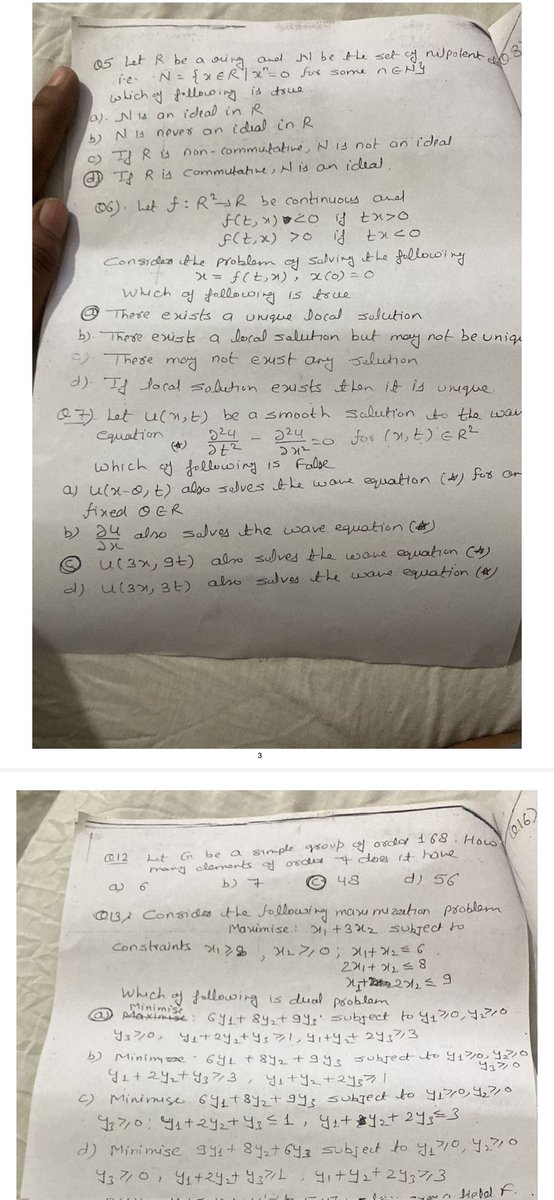 Q5 Let R be a ring and N be the set of nilpotent
i.e. N = {x ∈ R | xⁿ = 0 for some n ∈ N}
which of following is true
a). N is an ideal in R
b) N is never an ideal in R
c) If R is non-commutative, N is not an ideal
d) If R is commutative, N is an ideal.
Q6). Let f: R²→R be continuous and
f(t,x) <0 if tx>0
f(t,x) >0 if tx<0
Consider the problem of solving the following
x = f(t,x), x(0) = 0
Which of following is true
a) There exists a unique local solution
b). There exists a local solution but may not be uniqu
c). There may not exist any solution
d). If local solution exists then it is unique.
Q7) Let u(x,t) be a smooth solution to the wav
equation (*) ∂²u/∂t² - ∂²u/∂x² = 0 for (x,t) ∈ R²
which of following is False
a) u(x-θ,t) also solves the wave equation (*) for
fixed θ ∈ R
b) ∂u/∂x also solves the wave equation (*)
c) u(3x, 9t) also solves the wave equation (*)
d) u(3x, 3t) also solves the wave equation (*)
3
Q16)
Q12 Let G be a simple group of order 168. How
many elements of order 7 does it have
a) 6 b) 7 c) 48 d) 56
Q13) Consider the following maximization problem
Maximise: x₁ + 3x₂ subject to
Constraints , x₂ ≥ 0; x₁+x₂ ≤ 6
2x₁ + x₂ ≤ 8
2x₂ ≤ 9
Which of following is dual problem
a) Minimise: 6y₁ + 8y₂ + 9y₃ subject to y₁≥0, y₂≥0
y₃≥0, y₁+2y₂+y₃≥1, y₁+y₂+2y₃≥3
b) Minimise 6y₁ + 8y₂ + 9y₃ subject to y₁≥0, y₂≥0
y₃≥0
y₁ + 2y₂+y₃≥3, y₁+y₂+2y₃≥1
c) Minimise 6y₁+8y₂+9y₃ subject to y₁≥0, y₂≥0
y₃≥0; y₁+2y₂+y₃≤1, y₁+y₂+2y₃≤3
d) Minimise 9y₁+8y₂+6y₃ subject to y₁≥0, y₂≥0
y₃≥0, y₁+2y₂+y₃≥1, y₁+y₂+2y₃≥3
field F.